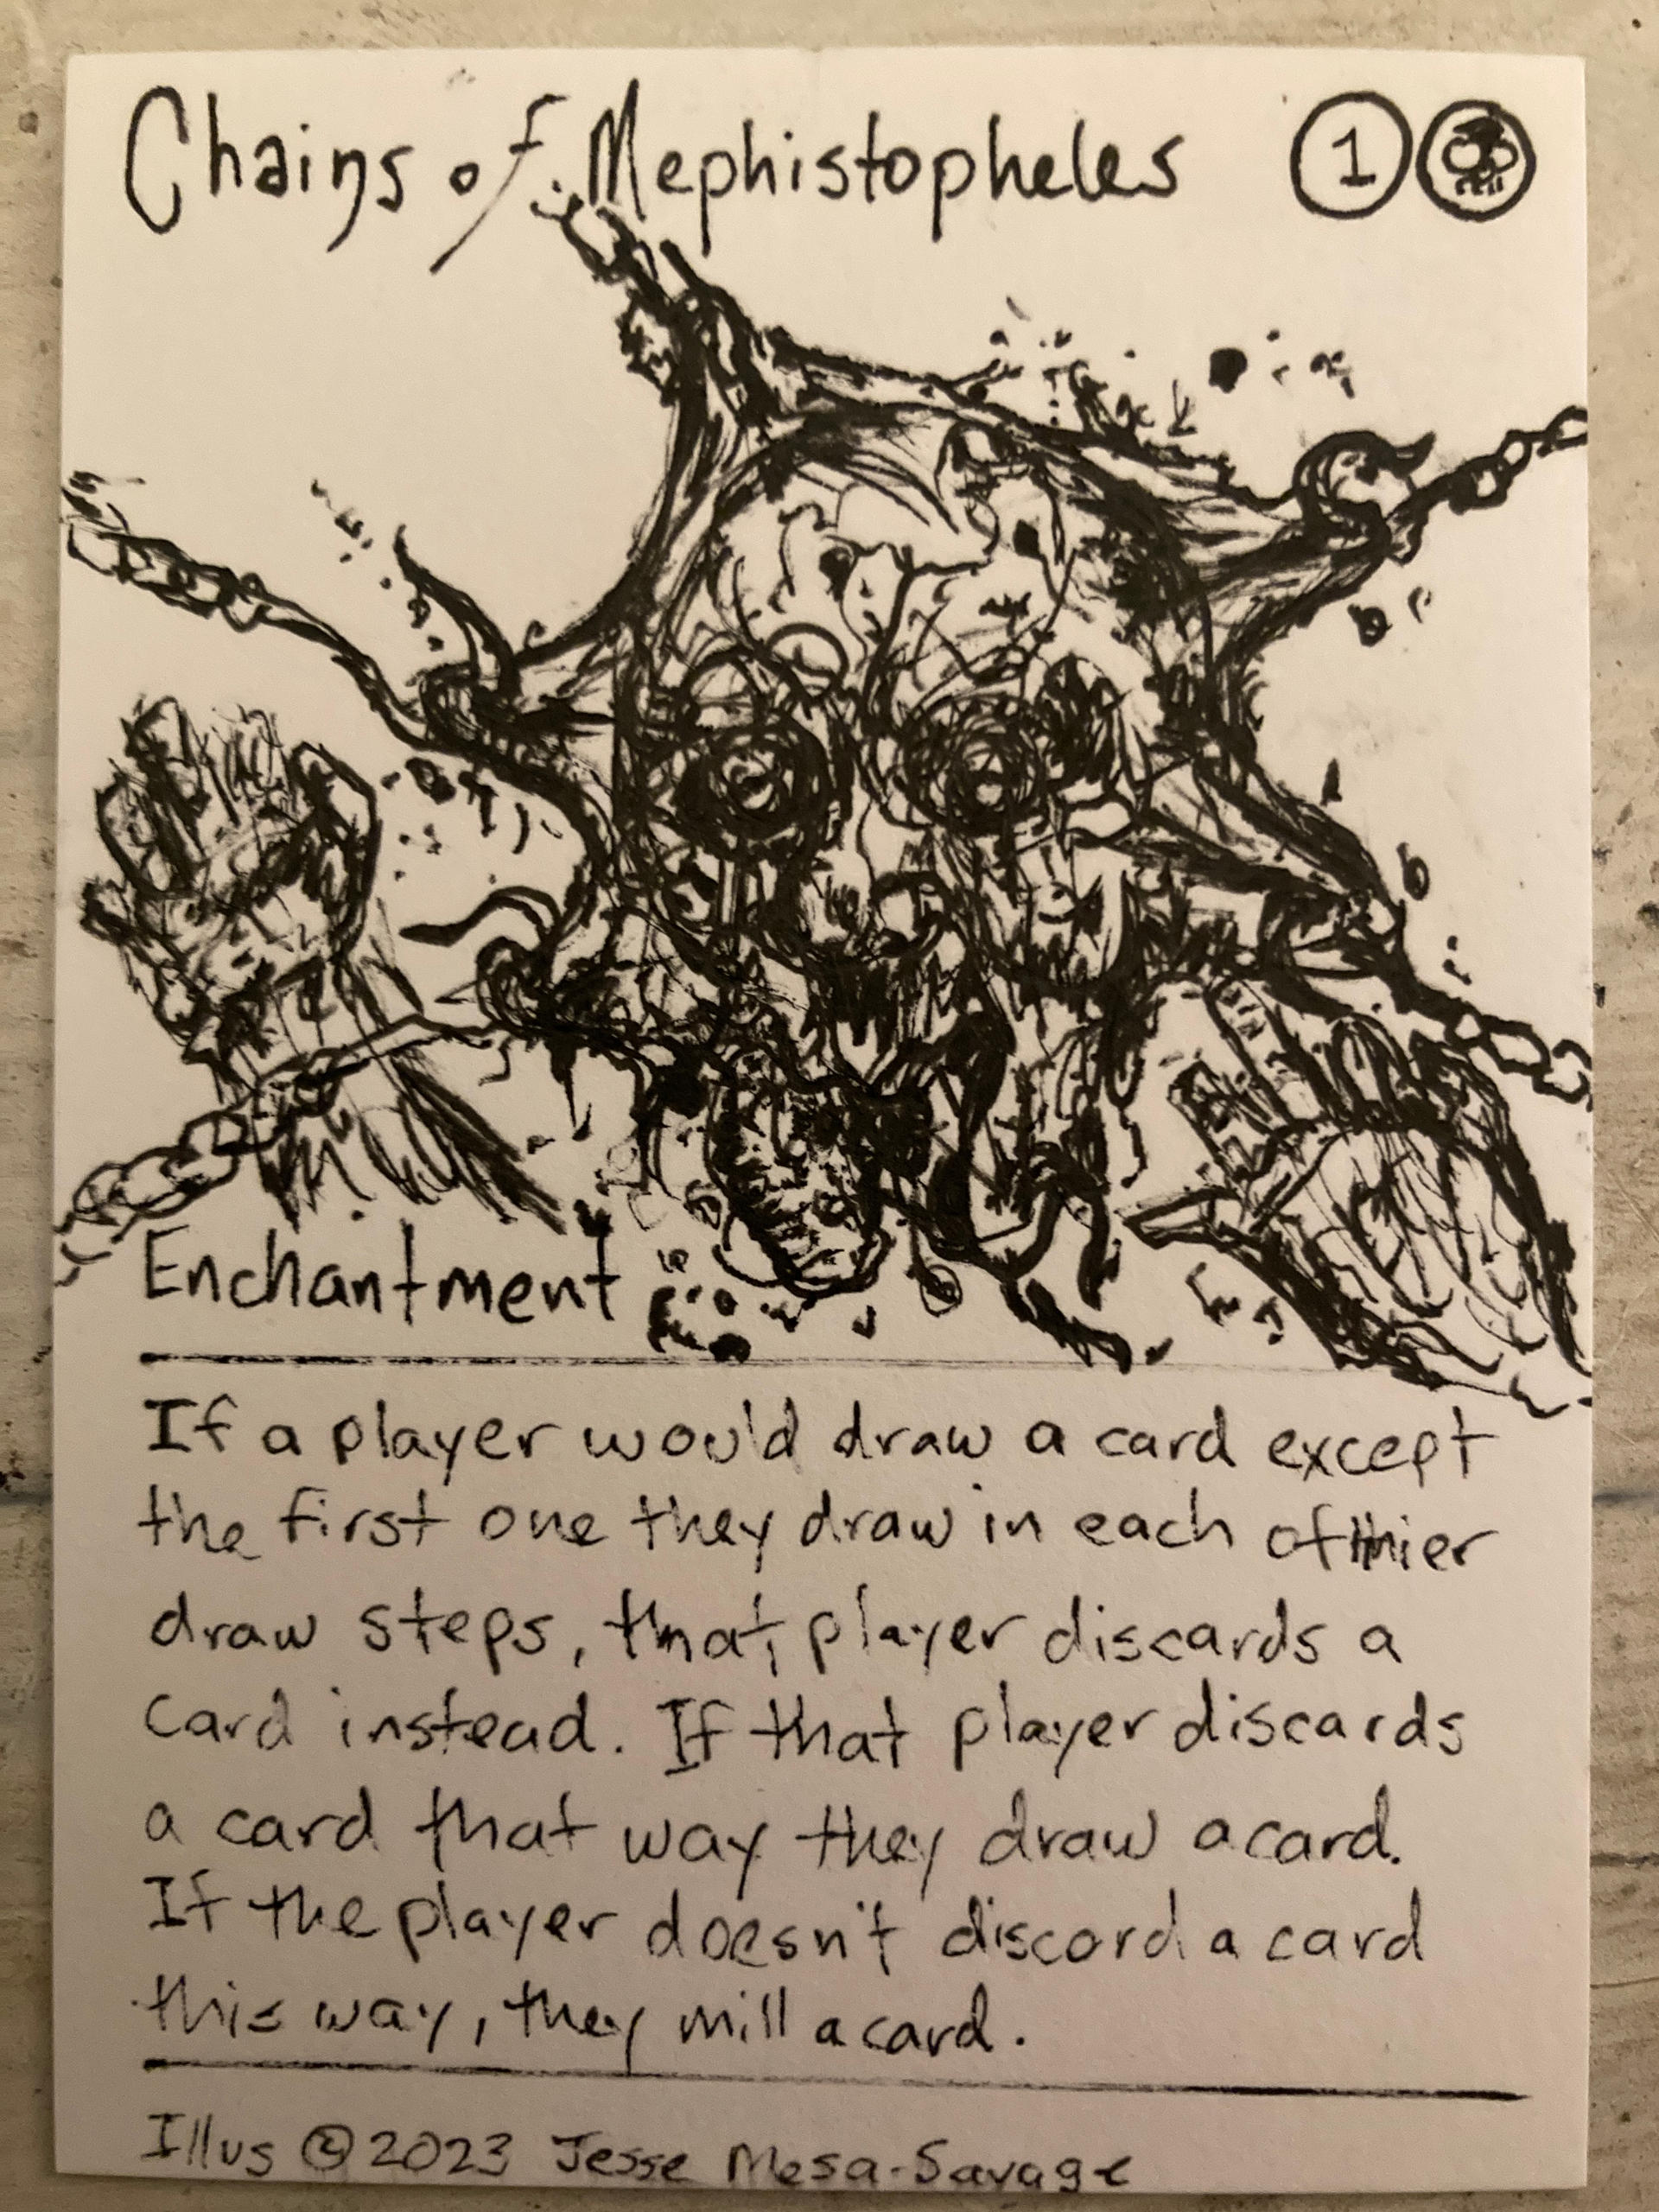 Chains of Mephistopheles 1
Enchantment
If a player would draw a card except
the first one they draw in each of thier
draw steps, that player discards a
card instead. If that player discards
a card that way they draw a card.
If the player doesn't discard a card
this way, they mill a card.
Illus © 2023 Jesse Mesa-Savage